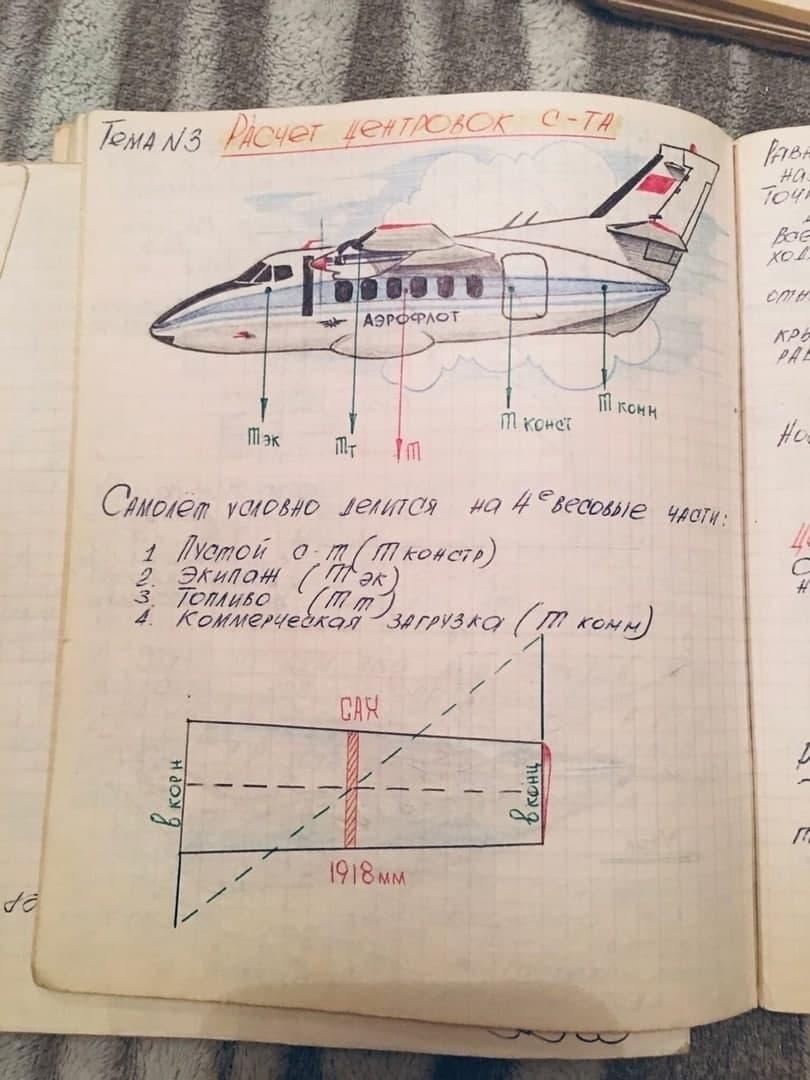 Тема N3 Расчет центровок с-та
АЭРОФЛОТ
m эк
m т
m
m конст
m комм
Самолёт условно делится на 4е весовые части:
1 Пустой с-т (m констр)
2. Экипаж (m эк)
3. Топливо (m т)
4. Коммерческая загрузка (m комм)
САХ
в корн
в конц
1918мм